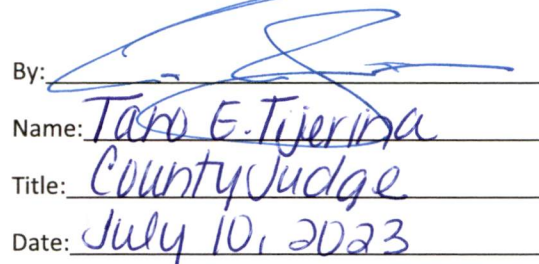 By:
Name: Tano E. Tijerina
Title: County Judge
Date: July 10, 2023